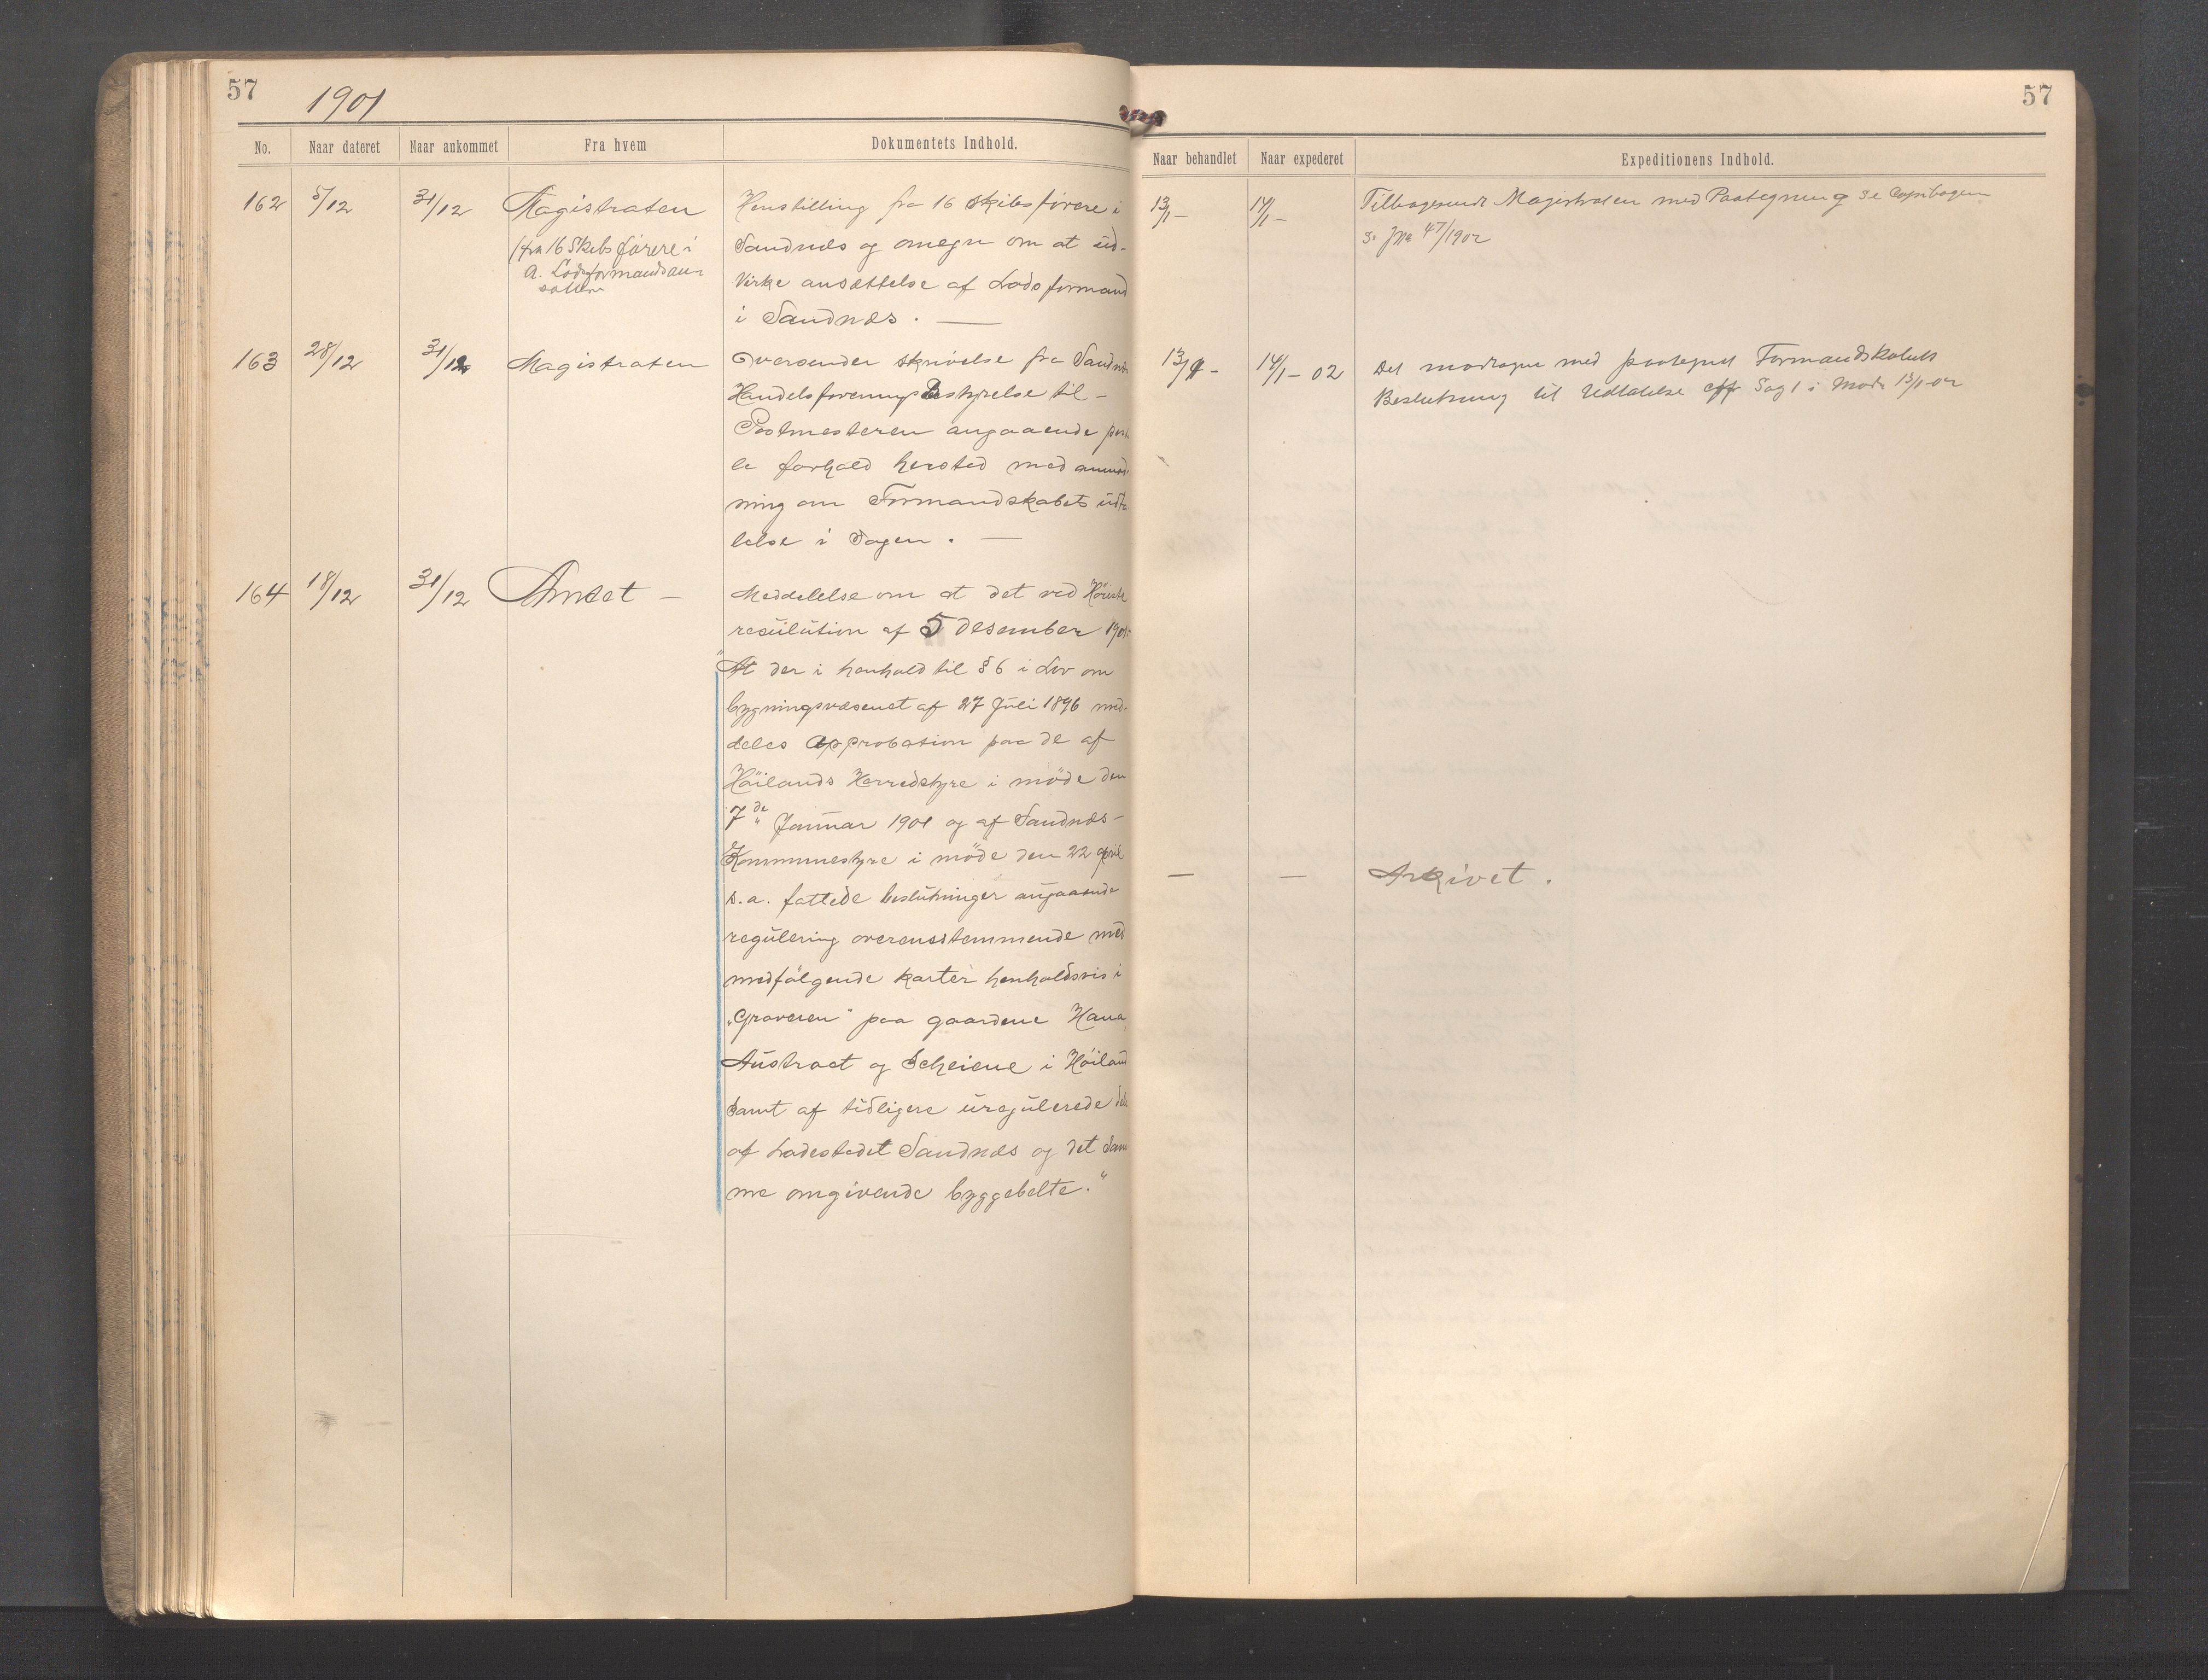 57
1901
No. Naar dateret Naar ankommet Fra hvem Dokumentets Indhold.
162 5/12 31/12 Magistraten
(fra 16 Skibsførere i
a. Lodsformandsan-
sættelse
Henstilling fra 16 Skibsførere i
Sandnæs og omegn om at ud-
virke ansættelse af Lodsformand
i Sandnæs. —
163 28/12 31/12 Magistraten
Oversender skrivelse fra Sandnæs
Handelsforenings Bestyrelse til -
Postmesteren angaaende posta-
le forhold hersted med anmod-
ning om Formandskabets udta-
lelse i Sagen. —
164 18/12 31/12 Amtet —
Meddelelse om at det ved Høieste
resulution af 5 desember 1901
"At der i henhold til § 6 i Lov om
bygningsvæsenet af 27 Juli 1896 med-
deles Approbation paa de af
Høilands Herredstyre i møde den
7de Januar 1901 og af Sandnæs-
Kommunestyre i møde den 22 april
s.a. fattede beslutninger angaaende
regulering overensstemmende med
medfølgende karter henholdsvis i
"Graveren" paa gaardene Hana
Austraat og Scheiene i Høiland
samt af tidligere uregulerede dele
af Ladestedet Sandnæs og det sam
me omgivende byggebelte."
57
Naar behandlet Naar expederet Expeditionens Indhold.
13/1 - 14/1 - Tilbagesendt Magistraten med Paategning se Copibogen
s. Jno 47/1902
13/1 - 14/1 - 02 Det modtagne med paategnet Formandskabets
Beslutning til Udtalelse Sag 1 i Møde 13/1-02
— — Arkivet.